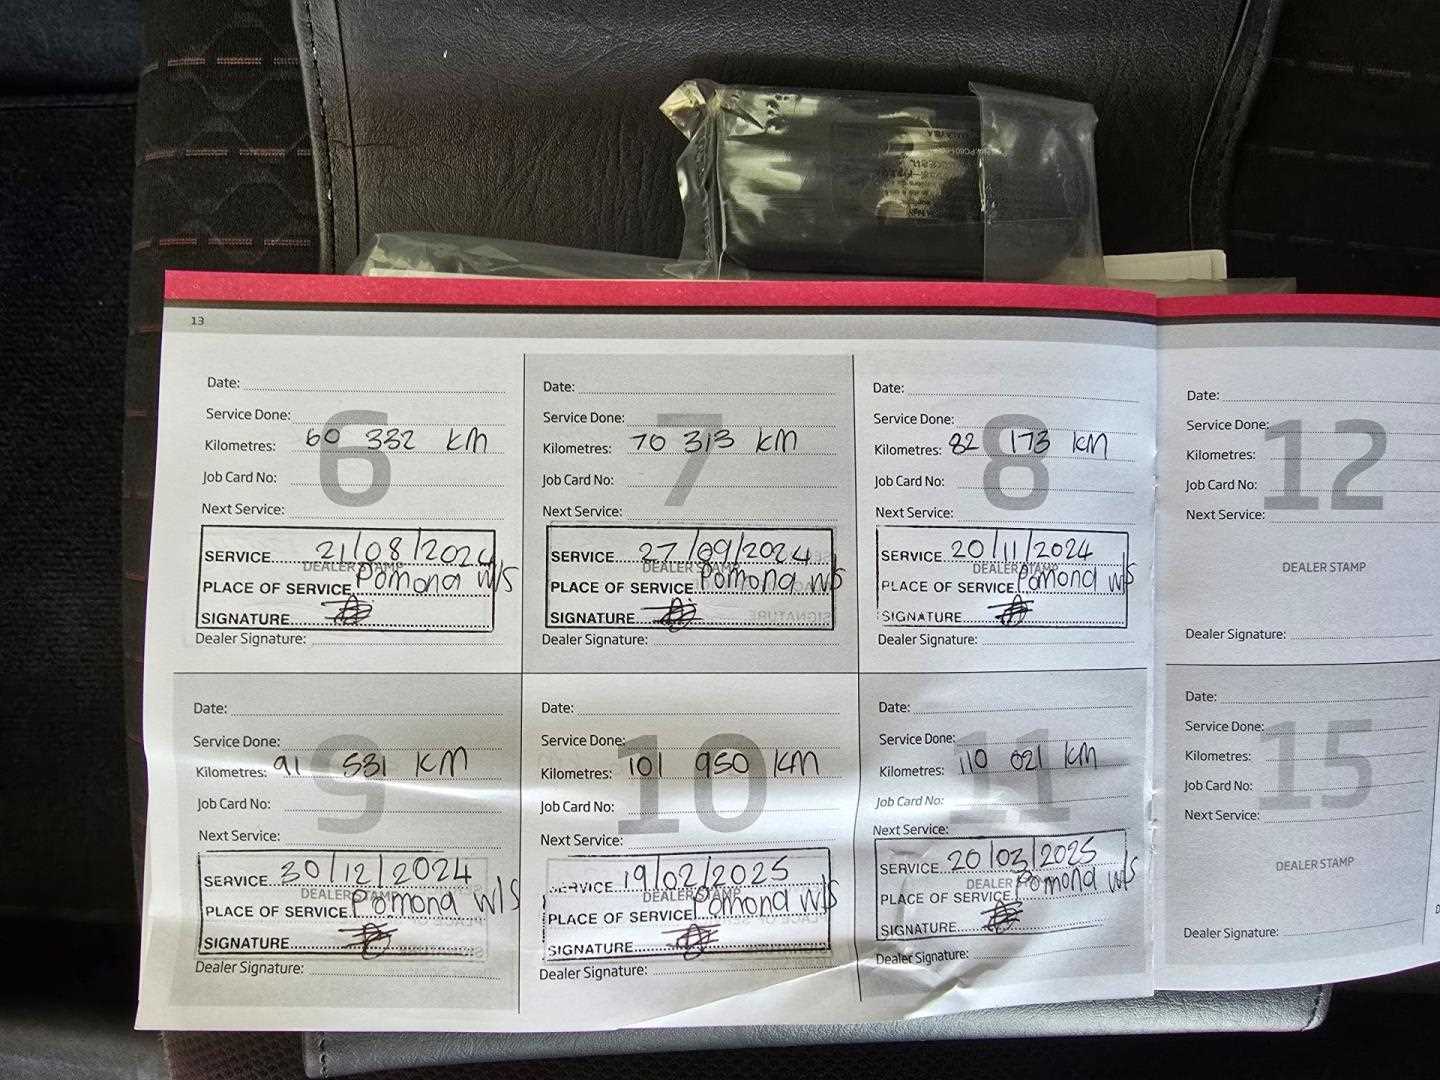 13
Date:
Service Done:
Kilometres: 60 332 KM
Job Card No:
6
Next Service:
SERVICE 21/08/2024
DEALER STAMP
PLACE OF SERVICE Pomona W/S
SIGNATURE
Dealer Signature:
Date:
Service Done:
Kilometres: 70 313 KM
Job Card No:
7
Next Service:
SERVICE 27/09/2024
DEALER STAMP
PLACE OF SERVICE Pomona W/S
SIGNATURE
Dealer Signature:
Date:
Service Done:
Kilometres: 82 173 KM
Job Card No:
8
Next Service:
SERVICE 20/11/2024
DEALER STAMP
PLACE OF SERVICE Pomona W/S
SIGNATURE
Dealer Signature:
Date:
Service Done:
Kilometres:
Job Card No:
12
Next Service:
DEALER STAMP
Dealer Signature:
Date:
Service Done:
Kilometres: 91 531 KM
Job Card No:
9
Next Service:
SERVICE 30/12/2024
DEALER STAMP
PLACE OF SERVICE Pomona W/S
SIGNATURE
Dealer Signature:
Date:
Service Done:
Kilometres: 101 950 KM
Job Card No:
10
Next Service:
SERVICE 19/02/2025
DEALER STAMP
PLACE OF SERVICE Pomona W/S
SIGNATURE
Dealer Signature:
Date:
Service Done:
Kilometres: 110 021 KM
Job Card No:
11
Next Service:
SERVICE 20/03/2025
DEALER
PLACE OF SERVICE Pomona W/S
SIGNATURE
Dealer Signature:
Date:
Service Done:
Kilometres:
Job Card No:
15
Next Service:
DEALER STAMP
Dealer Signature: